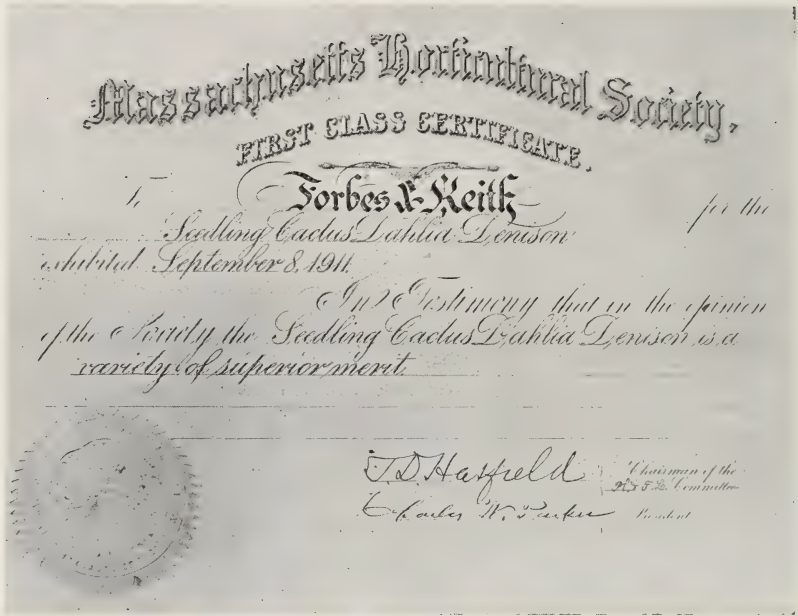 Massachusetts Horticultural Society,
FIRST CLASS CERTIFICATE.
To Forbes & Keith for the
Seedling Cactus Dahlia Denison
exhibited September 8, 1911.
In Testimony that in the opinion
of the Society the Seedling Cactus Dahlia Denison is a
variety of superior merit.
T.D. Hatfield Chairman of the
Committee
Charles W. Parker President